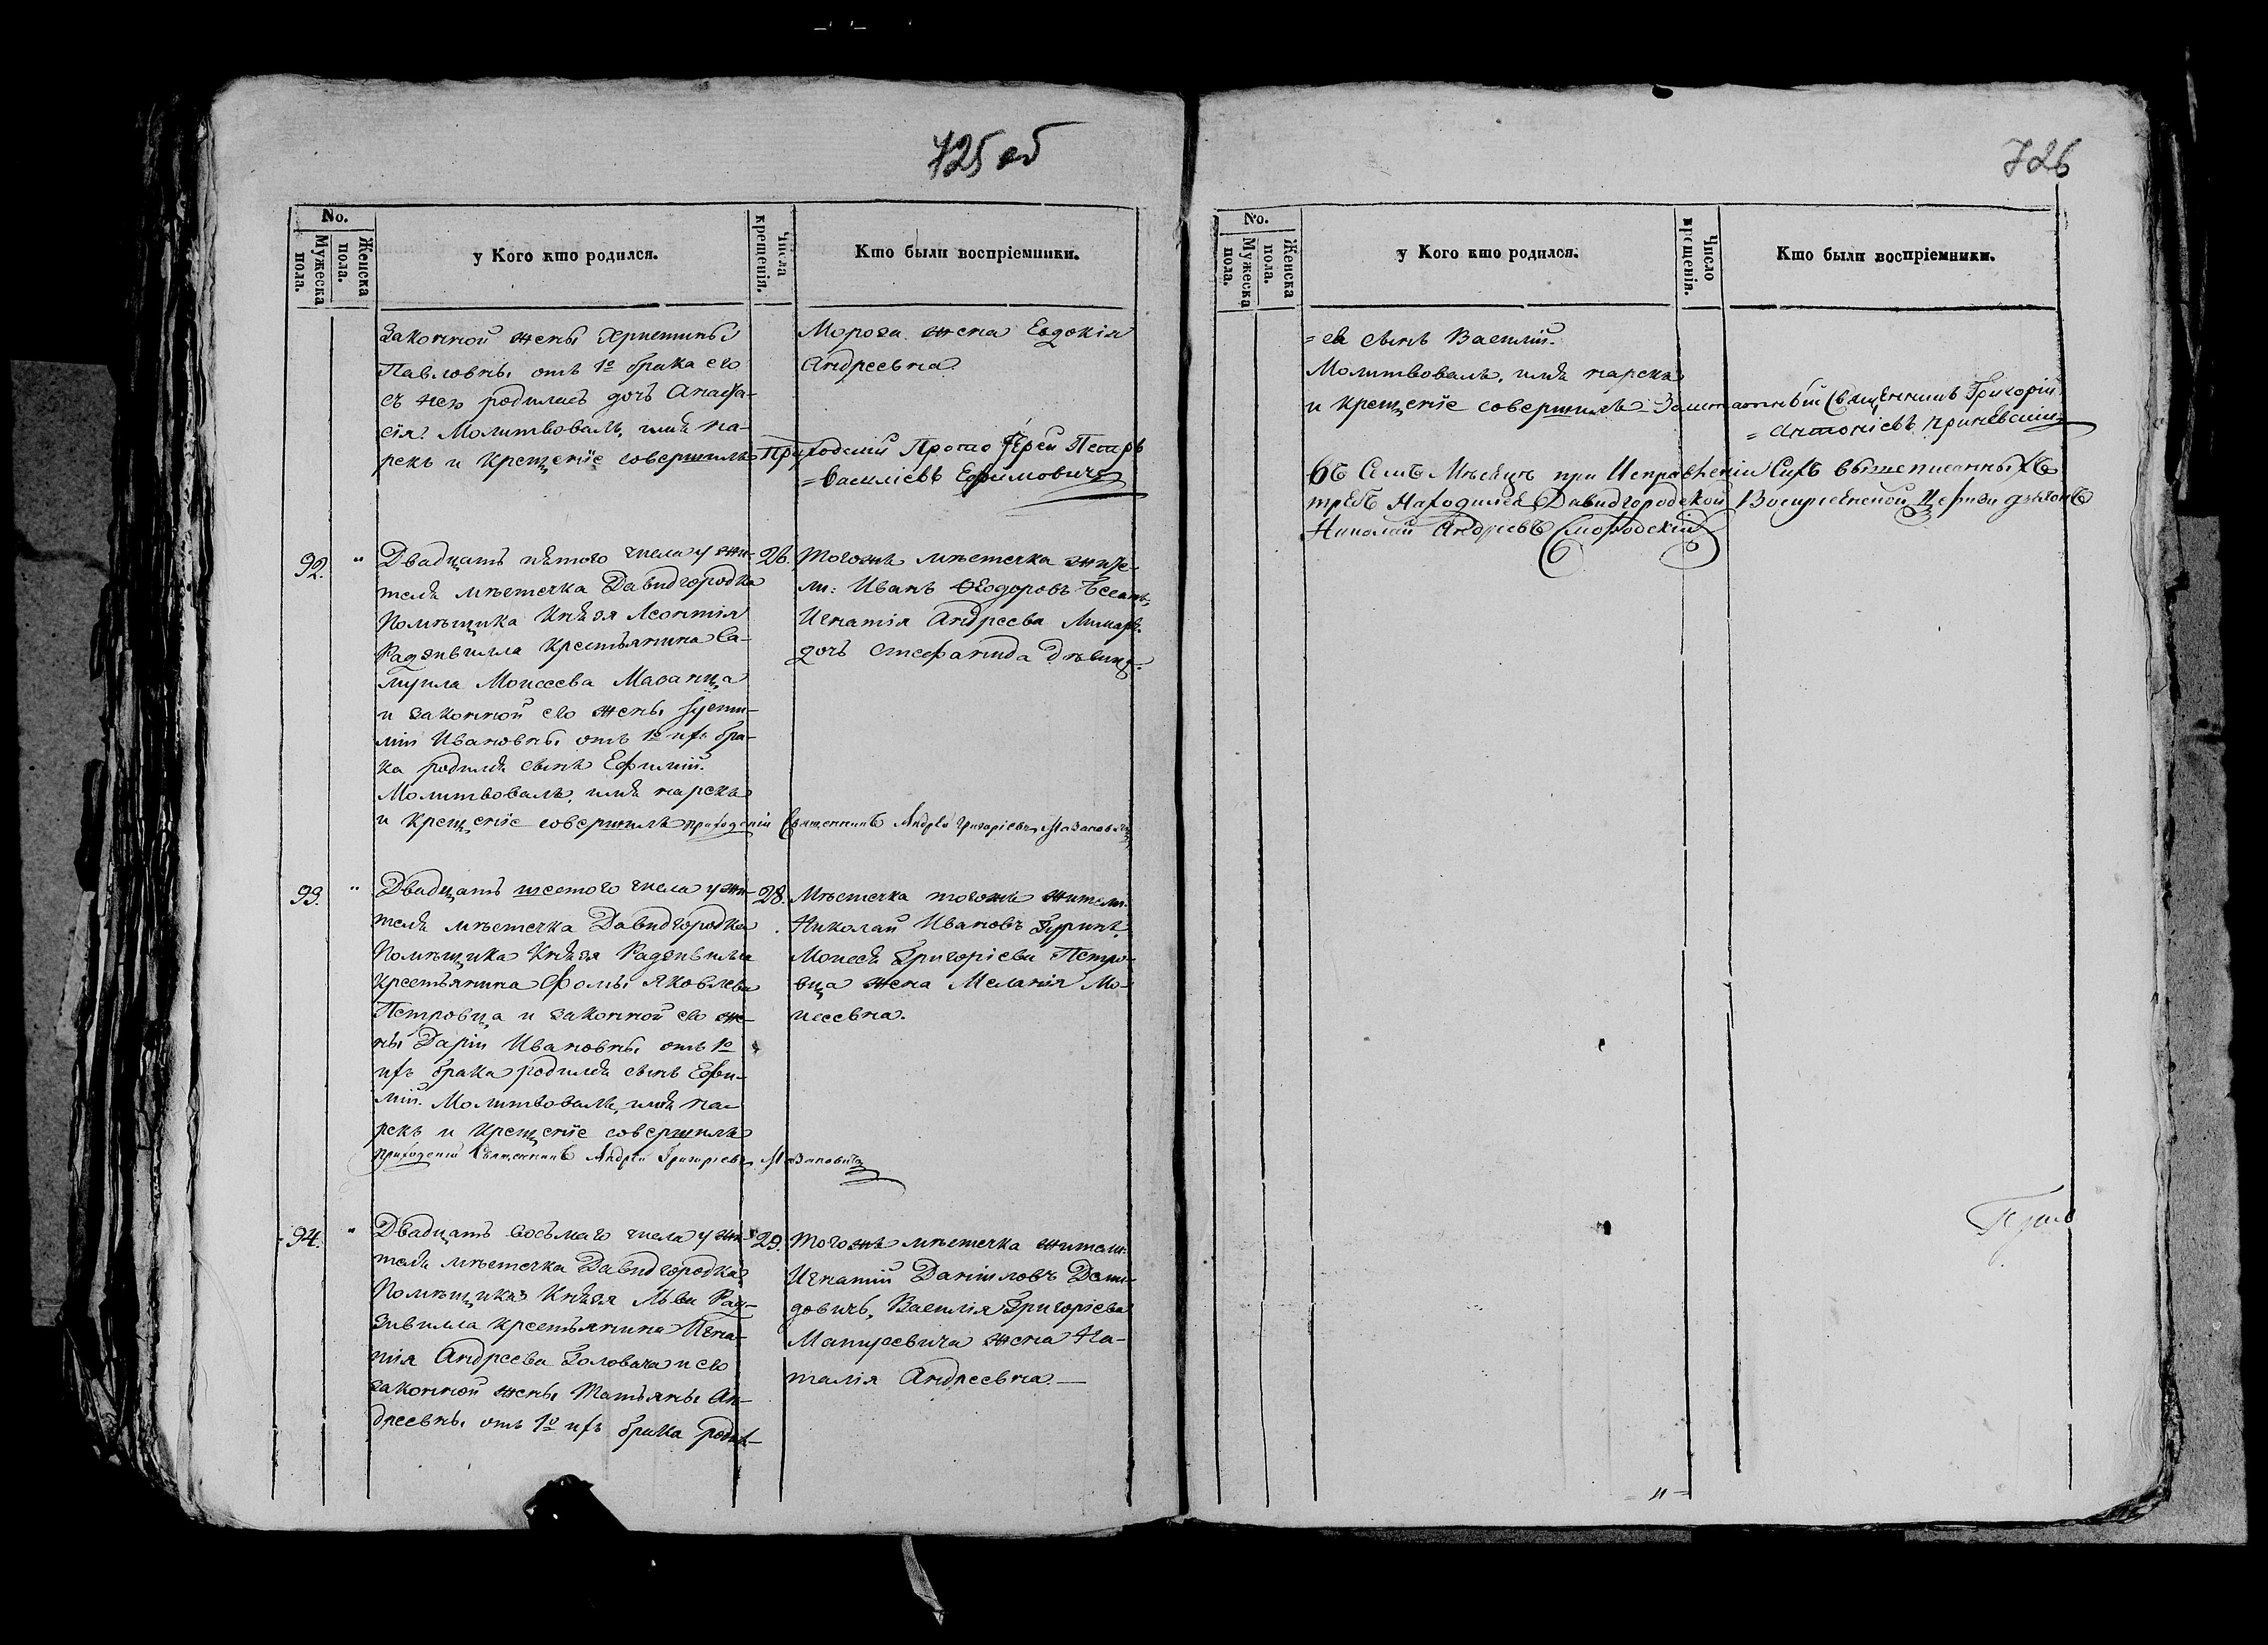 725 об
No.
Мужеска пола.
Женска пола.
у Кого кто родился.
Числа крещенія.
Кто были воспріемники.
законной жены Христины
Павловны отъ 1го брака его
съ нею родилась дочь Анаста-
сія. Молитвовалъ, имя на-
рекъ и крещеніе совершилъ Приходскій Протоіерей Петръ
= Василіевъ Ефимовичъ
Мороза жена Евдокія
Андреевна
92. "
Двадцать пятого числа у жи-
теля мѣстечка Давидгородка
Помѣщика Князя Леонтія
Радзивилла крестьянина Са-
муила Моисеева Мазанца
и законной его жены
Ивановны отъ 1го ихъ бра-
ка родился сынъ Ефимій.
Молитвовалъ, имя нарекъ
и крещеніе совершилъ приходскій Священникъ Андрей Григоріевъ Мазановичъ
26.
Тогожъ мѣстечка жите-
ли: Иванъ Ѳеодоровъ
Игнатія Андреева
дочь Стефанида дѣвица.
93. "
Двадцать шестого числа у жи-
теля мѣстечка Давидгородка
Помѣщика Князя Радзивилла
крестьянина Фомы Яковлева
Петровца и законной его же-
ны Даріи Ивановны отъ 1го
ихъ брака родился сынъ Ефи-
мій. Молитвовалъ, имя на-
рекъ и крещеніе совершилъ
приходскій Священникъ Андрей Григоріевъ Мазановичъ
28.
Мѣстечка тогожъ жители
Николай Ивановъ Гуринъ,
Моисея Григоріева Петро-
вца жена Меланія Мо-
исеевна.
94. "
Двадцать восьмаго числа у жи-
теля мѣстечка Давидгородка
Помѣщика Князя Льва Рад-
зивилла крестьянина Игна-
тія Андреева Головача и его
законной жены Татьяны Ан-
дреевны отъ 1го ихъ брака родил-
29.
Тогожъ мѣстечка жители:
Игнатій Даніиловъ Деми-
довичъ, Василія Григоріева
Манцевича жена На-
талія Андреевна.
726
No.
Мужеска пола.
Женска пола.
у Кого кто родился.
Число крещенія.
Кто были воспріемники.
= ся сынъ Василій.
Молитвовалъ, имя нарекъ
и крещеніе совершилъ Заштатный Священникъ Григорій
= Антоніевъ
Въ Семъ Мѣсяцѣ при Исправленіи Сихъ вышеписанныхъ
требъ Находился Давидгородской Воскресенской Церкви дьячокъ
Николай Андреевъ Смородскій